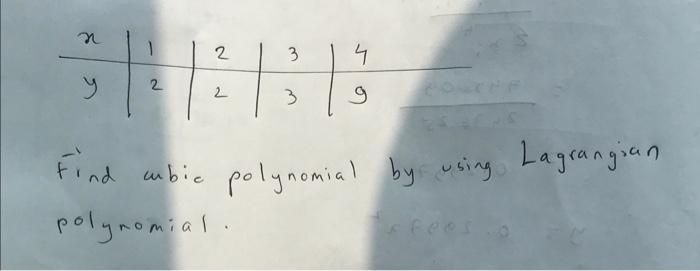 x 1 2 3 4
y 2 2 3 9
Find cubic polynomial by using Lagrangian
polynomial.